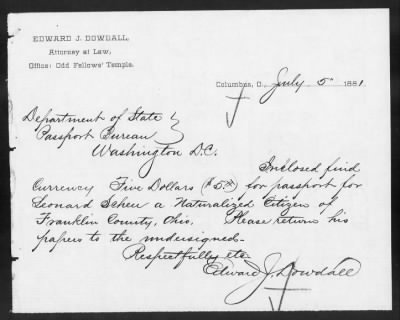 EDWARD J. DOWDALL,
Attorney at Law,
Office: Odd Fellows' Temple.
Columbus, O., July 5" 1881
Department of State
Passport Bureau
Washington D.C.
Inclosed find
Currency Five Dollars ($5⁰⁰) for passport for
Leonard Scheu a Naturalized Citizen of
Franklin County, Ohio. Please return his
papers to the undersigned-
Respectfully etc
Edward J. Dowdall